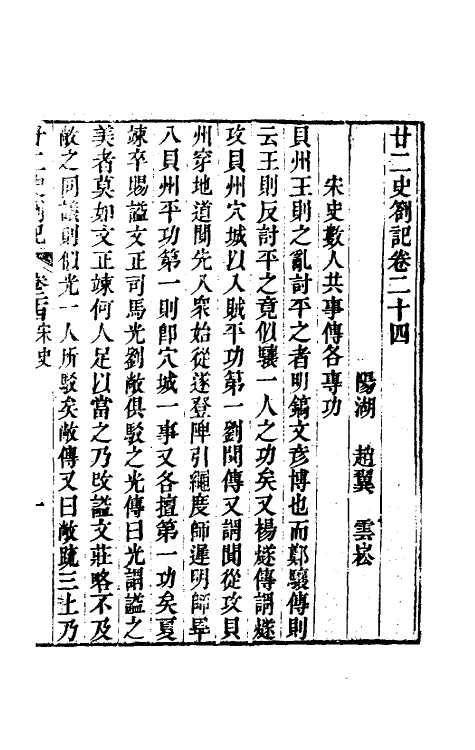 廿二史劄記卷二十四
陽湖 趙翼 雲崧
宋史數人共事傳各專功
貝州王則之亂討平之者明鎬文彥博也而鄭驤傳則
云王則反討平之竟似驤一人之功矣又楊燧傳謂燧
攻貝州穴城以入賊平功第一劉閴傳又謂閴從攻貝
州穿地道閴先入衆始從遂登陴引繩度師遲明師畢
入貝州平功第一則卽穴城一事又各擅第一功矣夏
竦卒賜謚文正司馬光劉敞俱駁之光傳曰光謂謚之
美者莫如文正竦何人足以當之乃改謚文莊略不及
敞之同議則似光一人所駁矣敞傳又曰敞疏三上乃
廿二史劄記 卷二十四 宋史 一